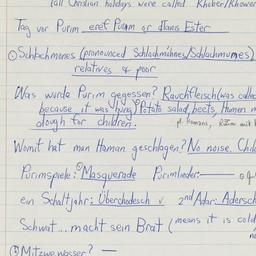 (all Christian holidays were called Khober/Khower
Tag vor Purim eref Purim or Jtanis Ester
① Schlachmones (pronounced Schlachmohnes/Schlachmumes)
relatives & poor
Was wurde Purim gegessen? Rauchfleisch (was called
because it was hung) Potato salad, beets, Human m
dough for children.
pl. Homans,
Womit hat man Haman geschlagen? No noise. Chil
Purimspiele: Masquerade Purimlieder: —
ein Schaltjahr: Überchodesch v. 2nd Adar: Adersch
Schwat... macht sein Brat (means it is cold
② Mitzwe wasser? —